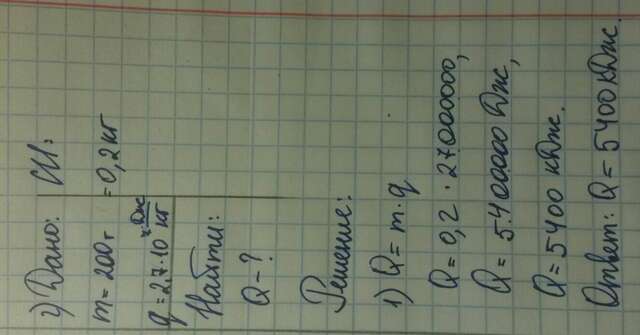 2) Дано: СИ:
m = 200 г = 0,2 кг
q = 27·10⁶ Дж/кг
Найти:
Q - ?
Решение:
1) Q = m·q
Q = 0,2 · 27000000,
Q = 5400000 Дж,
Q = 5400 кДж.
Ответ: Q = 5400 кДж.